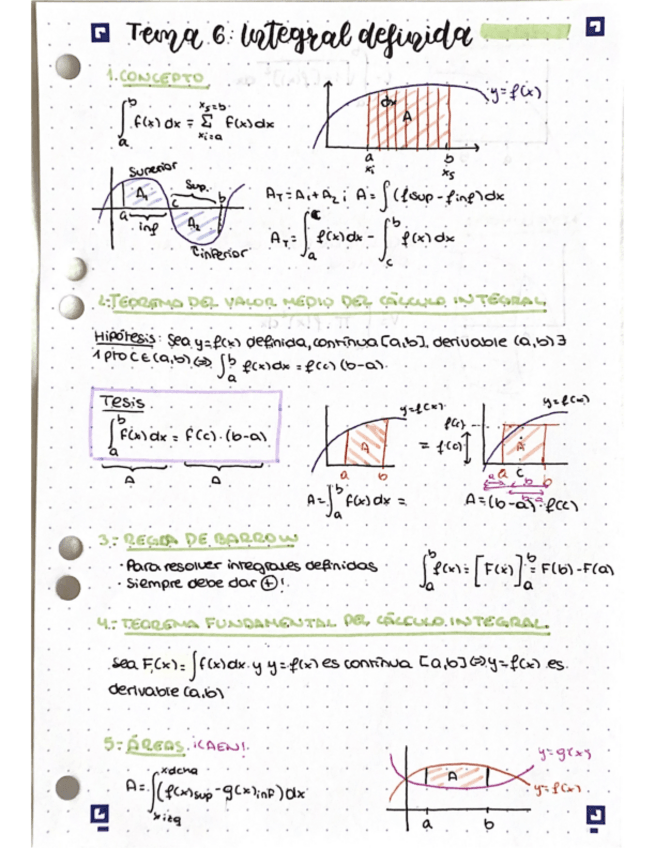 Tema 6: Integral definida
1. CONCEPTO
∫_a^b f(x) dx = Σ_{xi=a}^{xs=b} f(x) dx
y=f(x)
dx
A
a
b
xi
xs
Superior
A₁
Sup.
a
c
b
inf
A₂
inferior
A_T = A₁+A₂ ; A = ∫(fsup - finf) dx
A_T = ∫_a^c f(x) dx - ∫_c^b f(x) dx
2.-TEOREMA DEL VALOR MEDIO DEL CÁLCULO INTEGRAL
Hipótesis: Sea y=f(x) definida, continua [a,b], derivable (a,b) ∃
1 pto C∈(a,b) ⇔ ∫_a^b f(x) dx = f(c) (b-a).
Tesis
∫_a^b f(x) dx = f(c) · (b-a)
A
A
y=f(x)
A
a
b
A = ∫_a^b f(x) dx =
y=f(x)
f(c)
= f(c)
A
a
c
b
b-a
A = (b-a) · f(c)
3.- REGLA DE BARROW
· Para resolver integrales definidas
· Siempre debe dar ⊕!
∫_a^b f(x) = [F(x)]_a^b = F(b) - F(a)
4.- TEOREMA FUNDAMENTAL DEL CÁLCULO INTEGRAL.
Sea F(x) = ∫f(x) dx y y=f(x) es continua [a,b] ⇔ y=f(x) es
derivable (a,b)
5.- ÁREAS ¡CAEN!
A = ∫_{x izq}^{x dcha} (f(x)sup - g(x)inf) dx
y=g(x)
A
y=f(x)
a
b